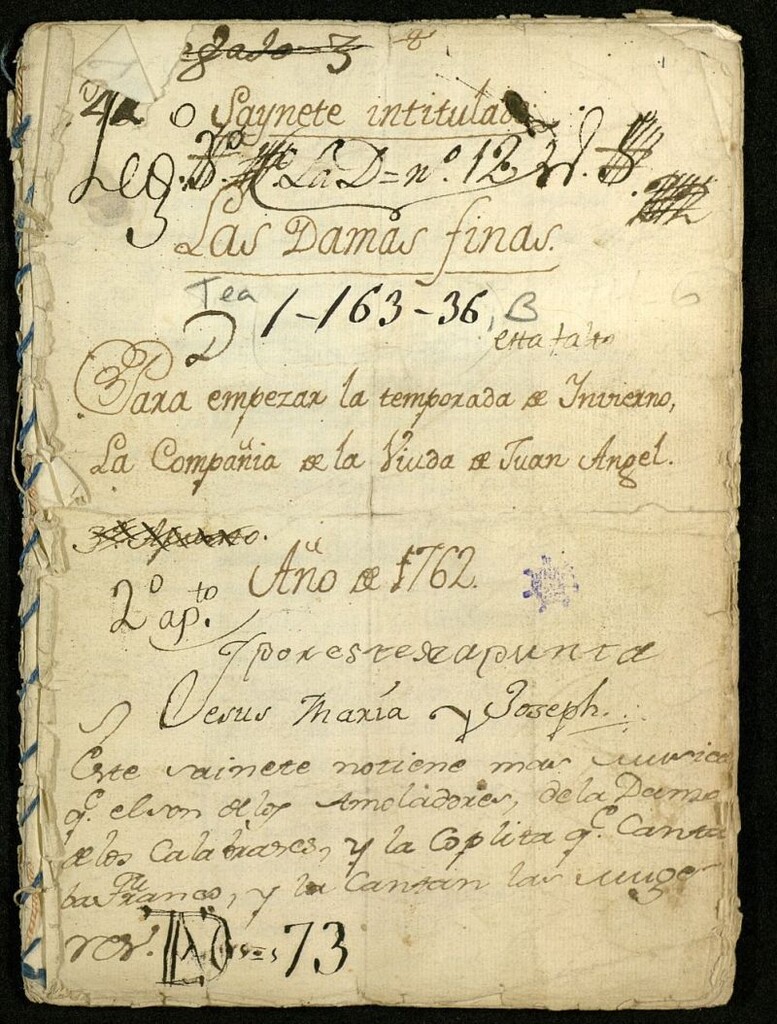 Saynete intitulado
Leg. La D = nº. 12
Las Damas finas.
Tea 1-163-36, B
Para empezar la temporada de Invierno,
La Compañia de la Viuda de Juan Angel.
3º. Apunto.
Año de 1762.
2º apto.
Y por este se apunta
Jesus María y Joseph.
Este sainete no tiene mas musica
q.e el son de los Amoladores, de la Dama
de los Calabazas, y la Coplita q.e Canta
ba Franco, y la Cantan las muge
res.
73